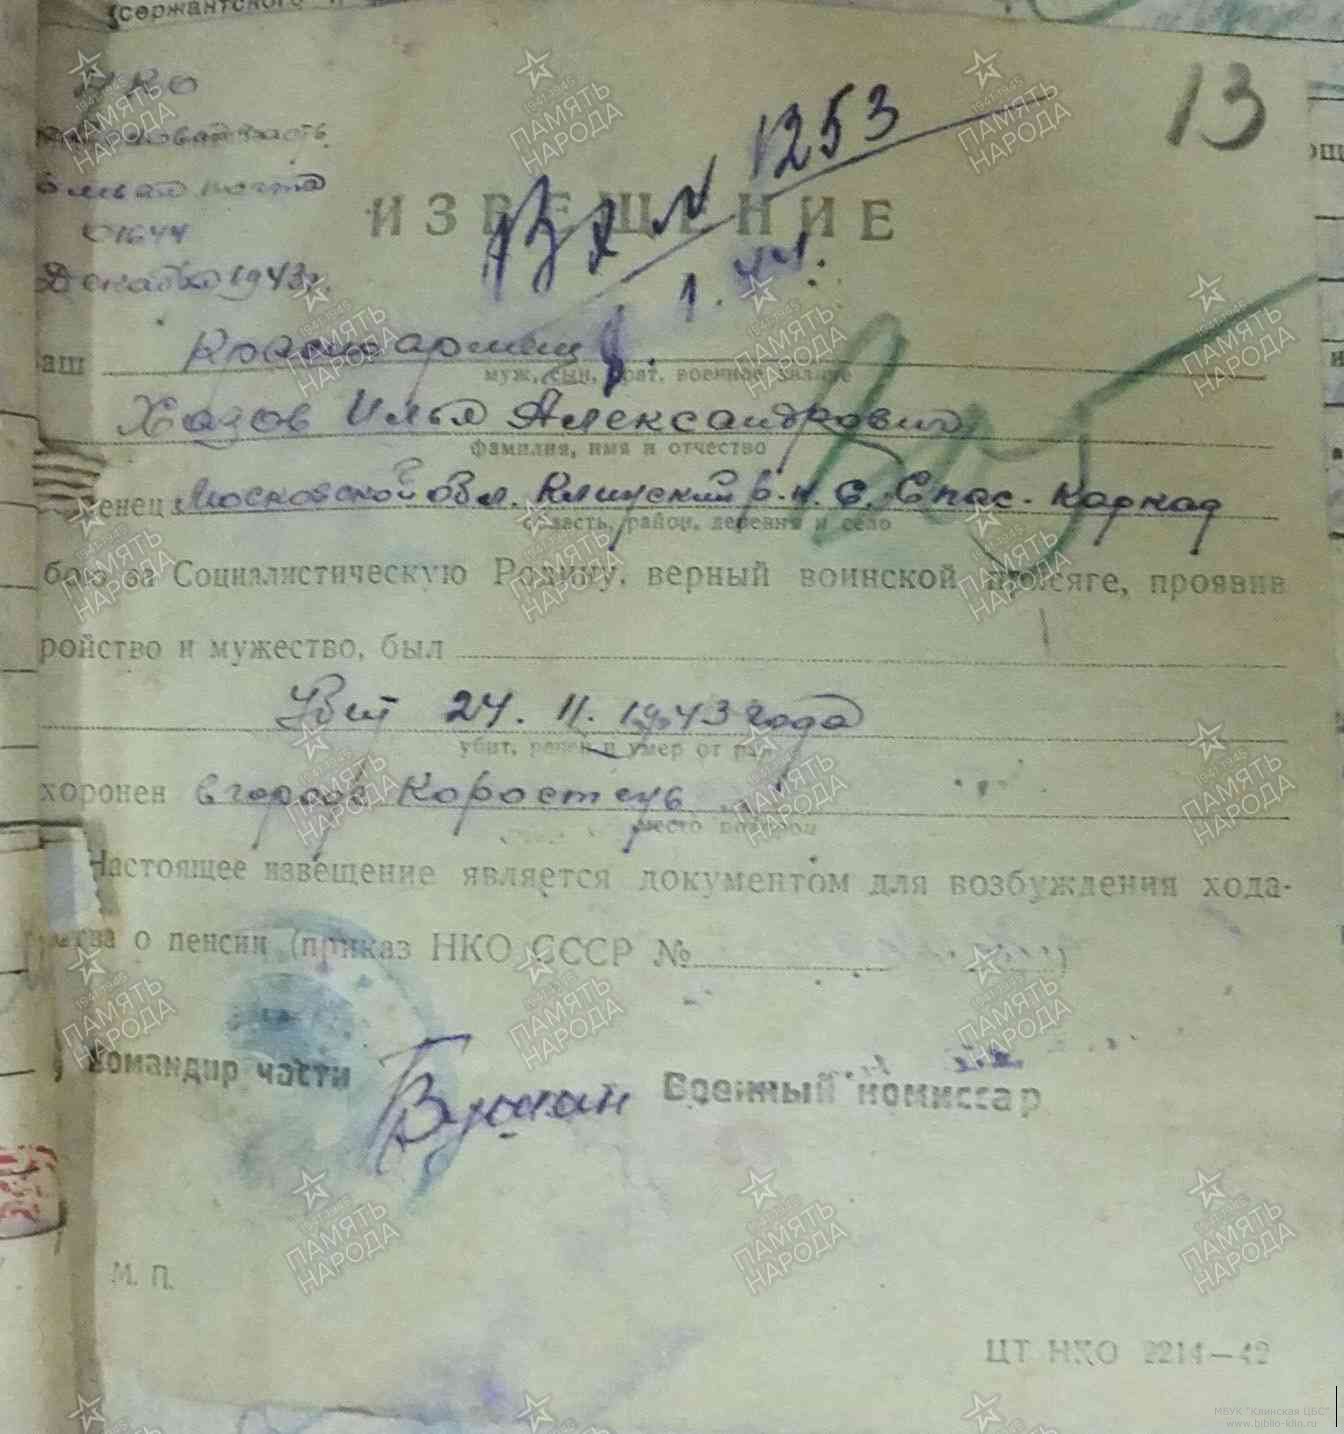 (сержантского
НКО
13
Полевая почта
01644
Декабря 1943г.
Вх N 1253
1.44.
ИЗВЕЩЕНИЕ
аш Красноармеец
муж, сын, брат, военное звание
Хазов Илья Александрович
фамилия, имя и отчество
женец Московской обл. Клинский р.н. С. Спас-Коркод
область, район, деревня и село
бою за Социалистическую Родину, верный воинской присяге, проявив
ройство и мужество, был
Убит 24. 11. 1943 года
убит, ранен и умер от ран
хоронен в городе Коростень
место похорон
Настоящее извещение является документом для возбуждения хода-
тва о пенсии (приказ НКО СССР №
Командир части
Военный комиссар
М. П.
ЦТ НКО 2214—42
ПАМЯТЬ НАРОДА
1941-1945
МБУК "Клинская ЦБС"
www.biblio-klin.ru